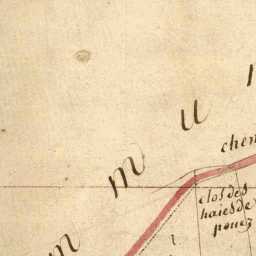 mmu
chem
clos des
haies de
pouez